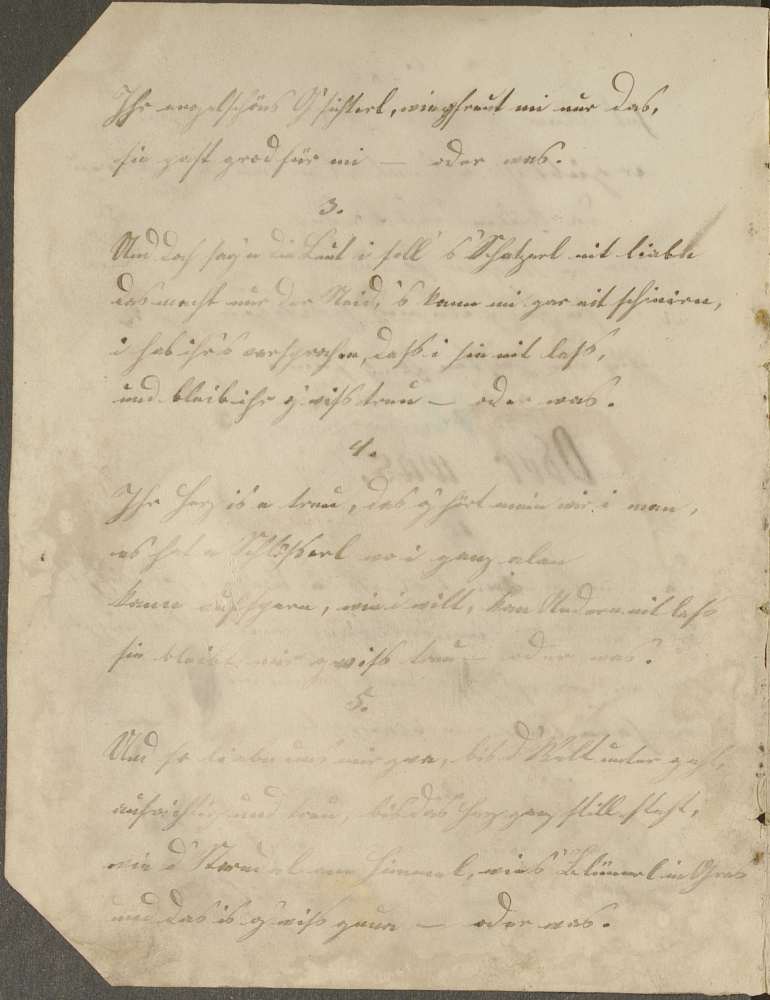 Ihr engelschöns G'sichterl, wia gfreut mi nur das,
sie past grod für mi — oder was.
3.
Und doch sag'n die Leut i soll s'Schatzerl nit liab'n
das macht nur der Neid, 's kann mi gar nit schinirn,
i hab ihr's versprochen, daß i sie nit laß,
und bleib ihr g'wiß treu — oder was.
4.
Ihr Herz is a treu, das g'hört wia i man,
es hat a Schlößerl wo i ganz alan
kann aufsperrn, wia i will, kan Andern nit laß
sie bleibt mir gwiß treu — oder was.
5.
Und so liab'n uns mir zwa, bis d'Welt unter geht,
aufrichtig und treu, bis das Herz ganz still steht,
wia d'Sternderl am Himmel, wia s'Bleamerl im Gras
und das is g'wiß — oder was.